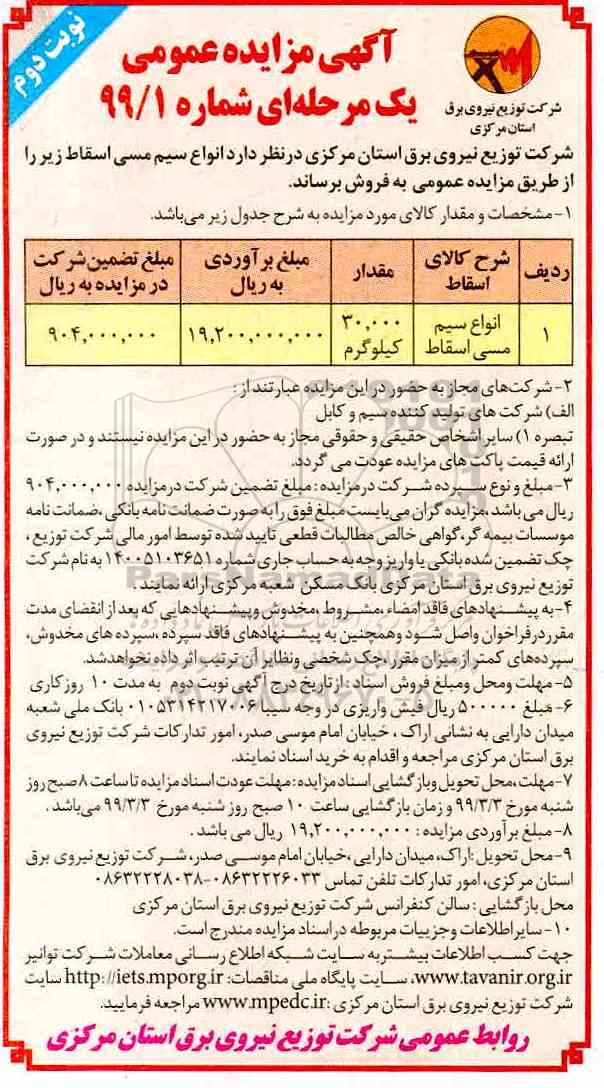 نوبت دوم
آگهی مزایده عمومی
یک مرحله‌ای شماره ۹۹/۱
شرکت توزیع نیروی برق
استان مرکزی
شرکت توزیع نیروی برق استان مرکزی درنظر دارد انواع سیم مسی اسقاط زیر را
از طریق مزایده عمومی به فروش برساند.
۱-مشخصات و مقدار کالای مورد مزایده به شرح جدول زیر می‌باشد.
ردیف | شرح کالای اسقاط | مقدار | مبلغ برآوردی به ریال | مبلغ تضمین شرکت در مزایده به ریال
۱ | انواع سیم مسی اسقاط | ۳۰,۰۰۰ کیلوگرم | ۱۹,۲۰۰,۰۰۰,۰۰۰ | ۹۰۴,۰۰۰,۰۰۰
۲-شرکت‌های مجاز به حضور در این مزایده عبارتند از :
الف) شرکت های تولید کننده سیم و کابل
تبصره ۱) سایر اشخاص حقیقی و حقوقی مجاز به حضور در این مزایده نیستند و در صورت
ارائه قیمت پاکت های مزایده عودت می گردد.
۳-مبلغ و نوع سپرده شرکت درمزایده : مبلغ تضمین شرکت درمزایده ۹۰۴,۰۰۰,۰۰۰
ریال می باشد ،مزایده گران می‌بایست مبلغ فوق را به صورت ضمانت نامه بانکی ،ضمانت نامه
موسسات بیمه گر،گواهی خالص مطالبات قطعی تایید شده توسط امور مالی شرکت توزیع ،
چک تضمین شده بانکی یا واریز وجه به حساب جاری شماره ۱۴۰۰۵۱۰۳۶۵۱ به نام شرکت
توزیع نیروی برق استان مرکزی بانک مسکن شعبه مرکزی ارائه نمایند.
۴-به پیشنهادهای فاقد امضاء ،مشروط ،مخدوش وپیشنهادهایی که بعد از انقضای مدت
مقرر درفراخوان واصل شود وهمچنین به پیشنهادهای فاقد سپرده ،سپرده های مخدوش،
سپرده‌های کمتر از میزان مقرر ،چک شخصی ونظایر آن ترتیب اثر داده نخواهدشد.
۵-مهلت ومحل ومبلغ فروش اسناد :از تاریخ درج آگهی نوبت دوم به مدت ۱۰ روزکاری
۶-مبلغ ۵۰۰۰۰۰ ریال فیش واریزی در وجه سیبا ۰۱۰۵۳۱۴۲۱۷۰۰۶ بانک ملی شعبه
میدان دارایی به نشانی اراک ، خیابان امام موسی صدر، امور تدارکات شرکت توزیع نیروی
برق استان مرکزی مراجعه و اقدام به خرید اسناد نمایند.
۷-مهلت،محل تحویل وبازگشایی اسناد مزایده : مهلت عودت اسناد مزایده تا ساعت ۸ صبح روز
شنبه مورخ ۹۹/۳/۳ و زمان بازگشایی ساعت ۱۰ صبح روز شنبه مورخ ۹۹/۳/۳ می‌باشد .
۸-مبلغ برآوردی مزایده : ۱۹,۲۰۰,۰۰۰,۰۰۰ ریال می باشد .
۹-محل تحویل :اراک، میدان دارایی ،خیابان امام موسی صدر، شرکت توزیع نیروی برق
استان مرکزی، امور تدارکات تلفن تماس ۰۸۶۳۲۲۲۶۰۳۳-۰۸۶۳۲۲۲۸۰۳۸
محل بازگشایی : سالن کنفرانس شرکت توزیع نیروی برق استان مرکزی
۱۰-سایر اطلاعات وجزییات مربوطه در اسناد مزایده مندرج است.
جهت کسب اطلاعات بیشتر به سایت شبکه اطلاع رسانی معاملات شرکت توانیر
www.tavanir.org.ir، سایت پایگاه ملی مناقصات: http://iets.mporg.ir سایت
شرکت توزیع نیروی برق استان مرکزی : www.mpedc.ir مراجعه فرمایید.
روابط عمومی شرکت توزیع نیروی برق استان مرکزی